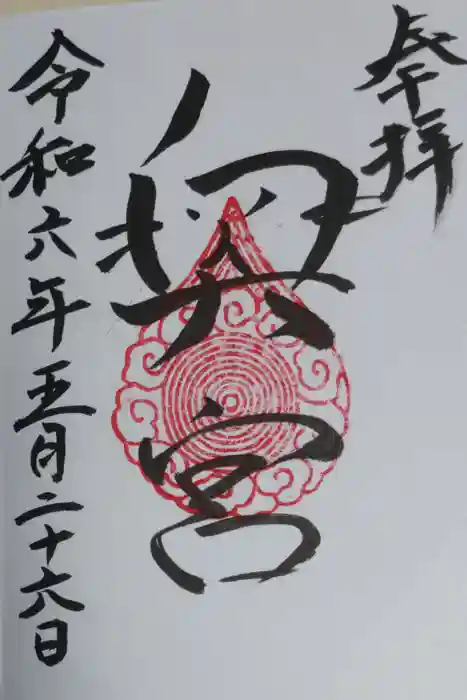 奉拝
奥宮
令和六年五月二十六日